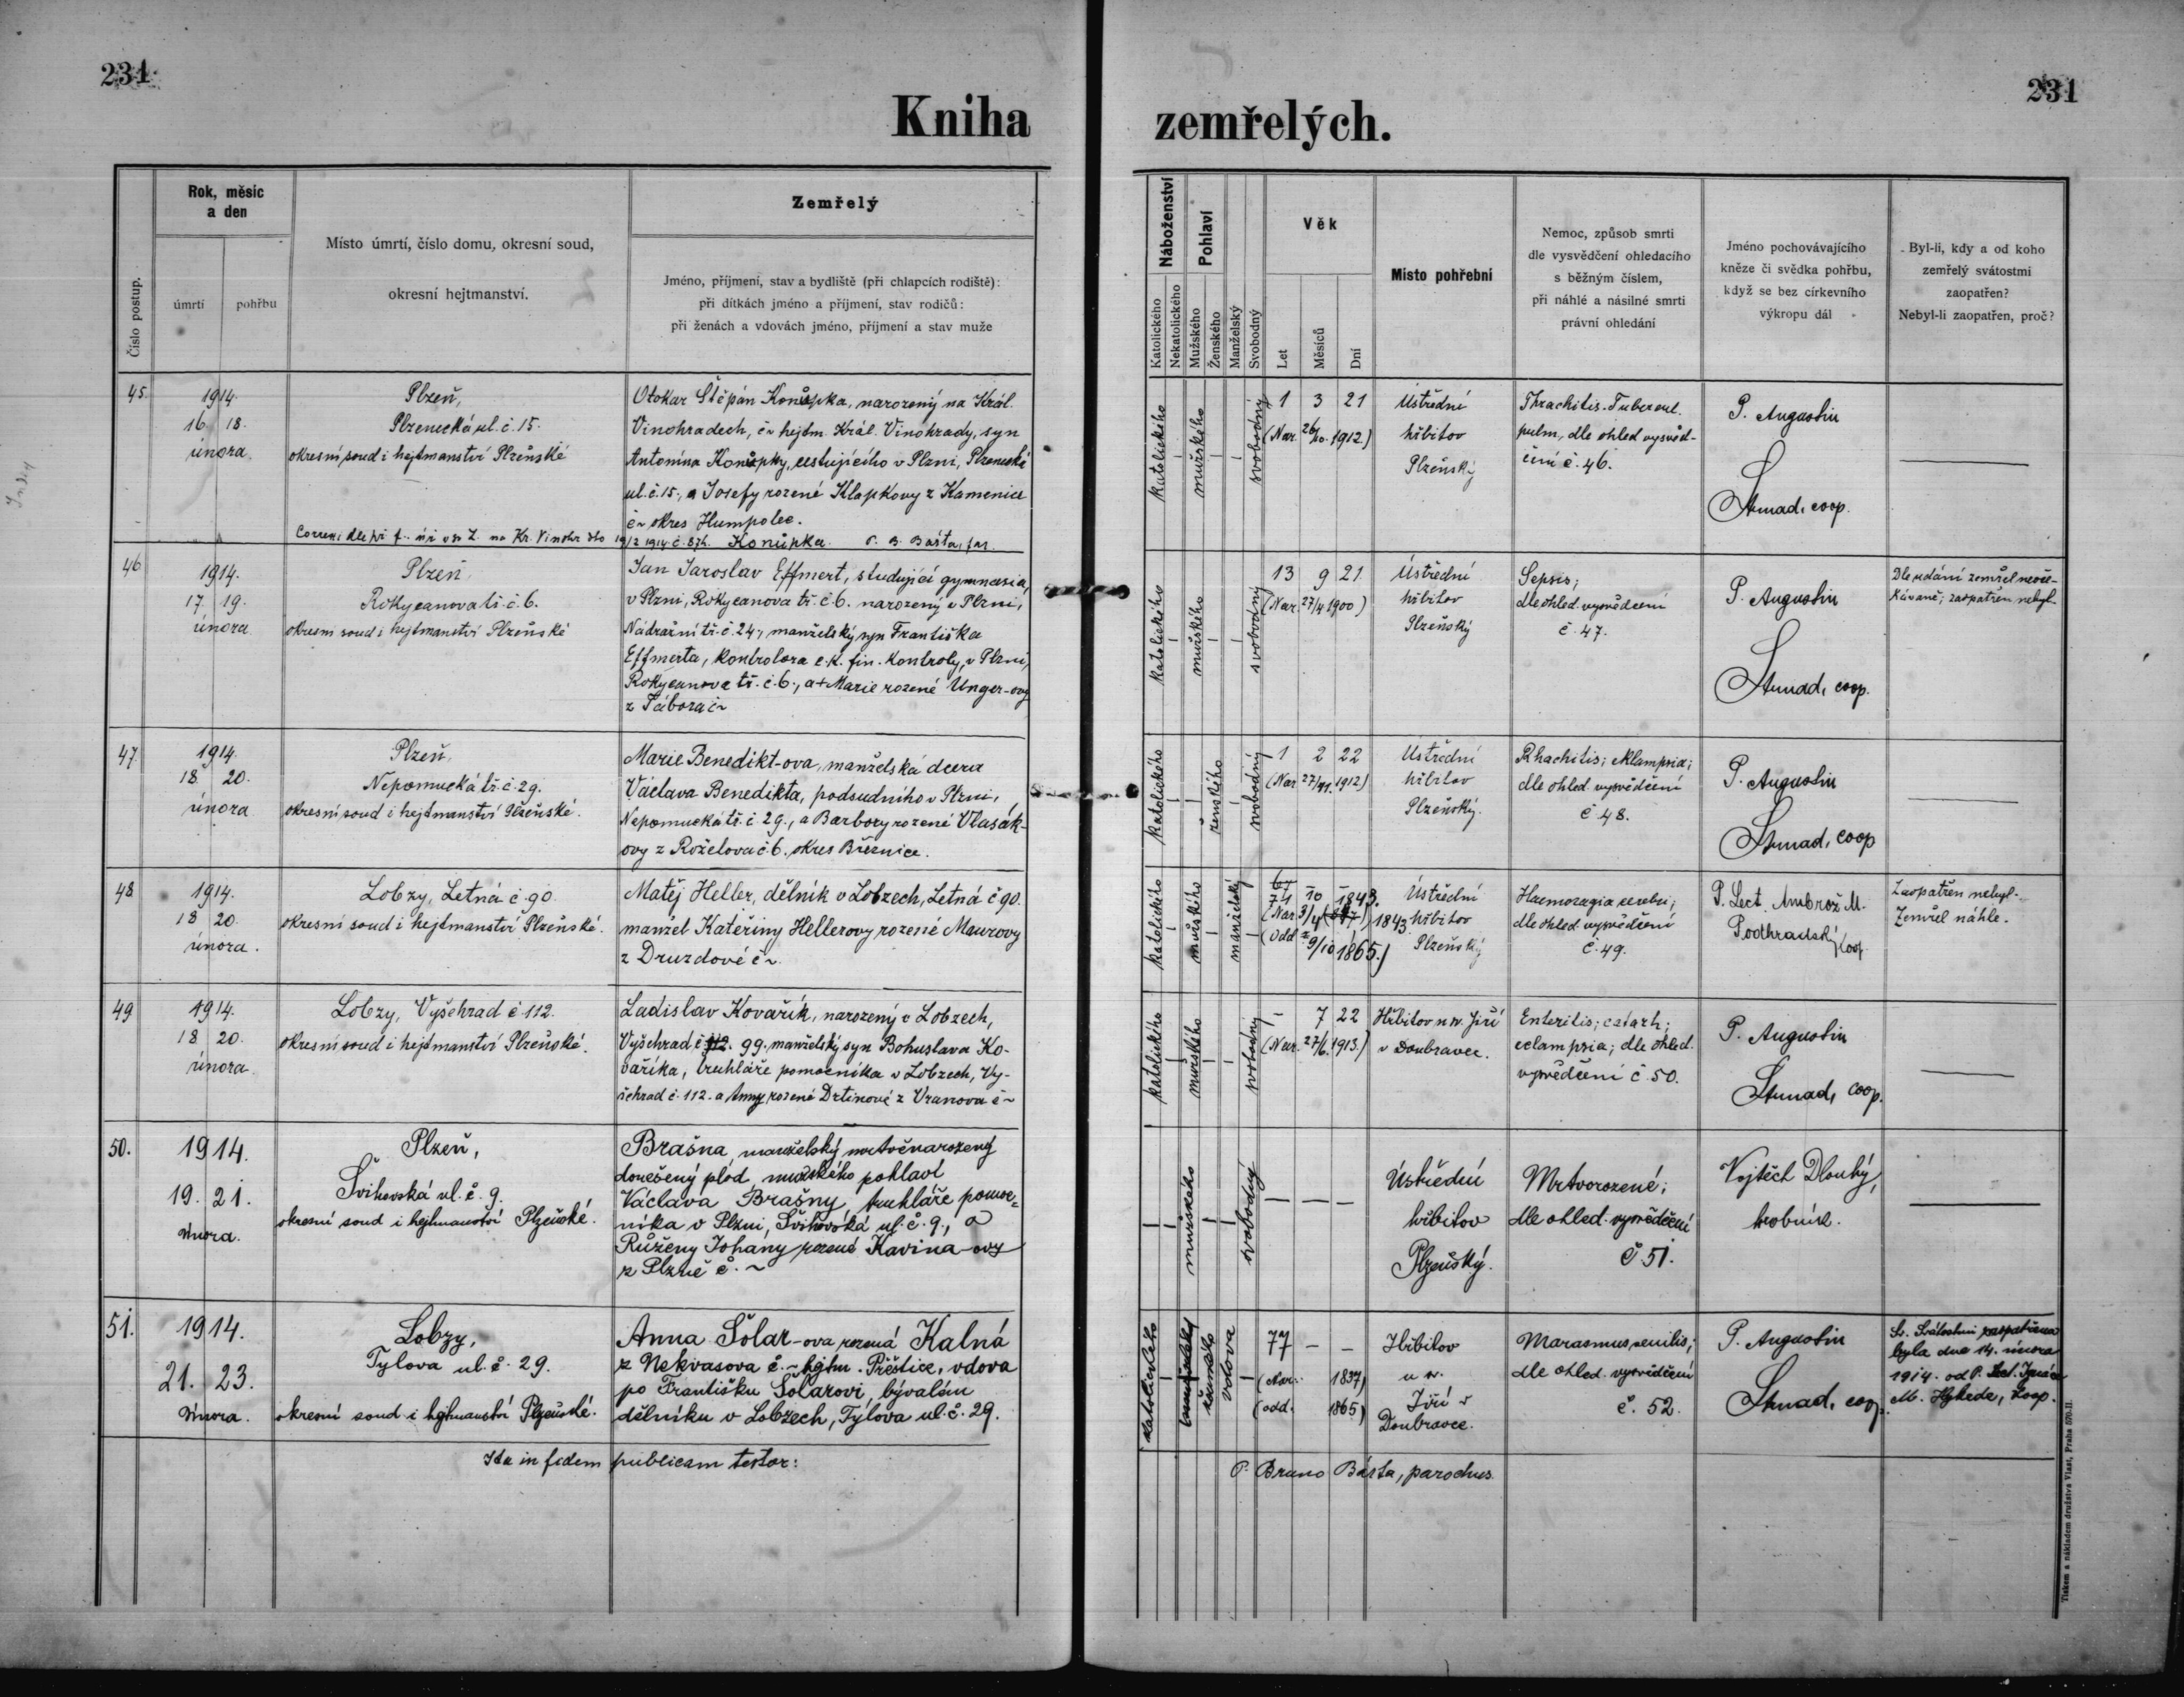 231
231
Kniha zemřelých.
Číslo postup.
Rok, měsíc
a den
úmrtí
pohřbu
Místo úmrtí, číslo domu, okresní soud,
okresní hejtmanství.
Zemřelý
Jméno, příjmení, stav a bydliště (při chlapcích rodiště):
při dítkách jméno a příjmení, stav rodičů:
při ženách a vdovách jméno, příjmení a stav muže
Náboženství
Katolického
Nekatolického
Pohlaví
Mužského
Ženského
Manželský
Svobodný
Věk
Let
Měsíců
Dní
Místo pohřební
Nemoc, způsob smrti
dle vysvědčení ohledacího
s běžným číslem,
při náhlé a násilné smrti
právní ohledání
Jméno pochovávajícího
kněze či svědka pohřbu,
když se bez církevního
výkropu dál
Byl-li, kdy a od koho
zemřelý svátostmi
zaopatřen?
Nebyl-li zaopatřen, proč?
45.
1914.
16. 18.
února.
Plzeň,
Plzenecká ul. č. 15.
okresní soud i hejtmanství Plzeňské
Otokar Štěpán Konůpka, narozený na Král.
Vinohradech, č~ hejtm. Král. Vinohrady, syn
Antonína Konůpky, cestujícího v Plzni, Plzenecká
ul. č. 15., a Josefy rozené Klapkovy z Kamenice
č~ okres Humpolec.
na Kr. Vinohr. dto 19/2 1914 č. 876. Konůpka. P. B. Bašta, far.
katolického
mužského
svobodný
1 3 21
(Nar. 26/10. 1912)
Ústřední
hřbitov
Plzeňský
Rhachitis. Tubercul.
pulm, dle ohled vysvěd-
čení č. 46.
P. Augustin
Strnad, coop.
46
1914.
17. 19.
února
Plzeň,
Rokycanova tř. č. 6.
okresní soud i hejtmanství Plzeňské
Jan Jaroslav Effmert, studující gymnasia,
v Plzni, Rokycanova tř. č. 6. narozený v Plzni,
Nádražní tř. č. 24, manželský syn Františka
Effmerta, kontrolora c. k. fin. kontroly, v Plzni,
Rokycanova tř. č. 6., a + Marie rozené Unger-ovy
z Tábora č~
katolického
mužského
svobodný
13 9 21
(Nar. 27/4 1900)
Ústřední
hřbitov
Plzeňský
Sepsis;
dle ohled. vysvědčení
č. 47.
P. Augustin
Strnad, coop.
Dle udání zemřel neoče-
kávaně; zaopatřen nebyl.
47.
1914.
18. 20.
února
Plzeň,
Nepomucká tř. č. 29.
okresní soud i hejtmanství Plzeňské.
Marie Benedikt-ova, manželská dcera
Václava Benedikta, podsudního v Plzni,
Nepomucká tř. č. 29., a Barbory rozené Vlasák-
ovy z Roželova č. 6. okres Březnice.
katolického
ženského
svobodný
1 2 22
(Nar 27/11. 1912)
Ústřední
hřbitov
Plzeňský.
Rhachitis; eklampsia;
dle ohled. vysvědčení
č 48.
P. Augustin
Strnad, coop
48
1914.
18 20.
února.
Lobzy, Letná č 90.
okresní soud i hejtmanství Plzeňské.
Matěj Heller, dělník v Lobzech, Letná č 90.
manžel Kateřiny Hellerovy rozené Maurovy
z Druzdové č~.
katolického
mužského
manželský
1843
(Odd 9/10 1865.)
Ústřední
hřbitov
Plzeňský
Haemoragia cerebri;
dle ohled. vysvědčení
č. 49.
P. Lect. Ambrož M.
Podhradský coop
Zaopatřen nebyl.-
Zemřel náhle.
49
1914.
18 20.
února
Lobzy, Vyšehrad č 112.
okresní soud i hejtmanství Plzeňské.
Ladislav Kovařík, narozený v Lobzech,
Vyšehrad č 112. 99. manželský syn Bohuslava Ko-
vaříka, truhláře pomocníka v Lobzech, Vy-
šehrad č. 112. a Anny rozené Drtinové z Vranova č~
katolického
mužského
svobodný
- 7 22
(Nar. 27/6. 1913.)
Hřbitov u sv. Jiří
v Doubravce.
Enteritis; catarh;
eclampsia; dle ohled.
vysvědčení č 50.
P. Augustin
Strnad, coop.
50.
1914.
19. 21.
února.
Plzeň,
Švihovská ul. č. 9.
okresní soud i hejtmanství Plzeňské.
Brašna, manželský mrtvěnarozený
donešený plod mužského pohlaví
Václava Brašny, truhláře pomoc-
níka v Plzni, Švihovská ul. č. 9., a
Růženy Johány rozené Kavina-ovy
z Plzně č. ~
mužského
svobodný
— — —
Ústřední
hřbitov
Plzeňský.
Mrtvorozené;
dle ohled. vysvědčení
č 51.
Vojtěch Dlouhý,
hrobník.
51.
1914.
21. 23.
února.
Lobzy,
Tylova ul. č. 29.
okresní soud i hejtmanství Plzeňské.
Anna Šolar-ova rozená Kalná
z Nekvasova č. ~ hejtm. Přeštice, vdova
po Františku Šolarovi, bývalém
dělníku v Lobzech, Tylova ul. č. 29.
katolického
ženského
vdova
77 - -
(Nar. 1837)
(odd. 1865)
Hřbitov
u sv.
Jiří v
Doubravce.
Marasmus senilis;
dle ohled. vysvědčení
č. 52.
P. Augustin
Strnad, coop.
Sv. Svátostmi zaopatřena
byla dne 14. února
1914. od P. Lect. Ignáce
M. Hykede, koop.
Ita in fidem publicam testor:
P. Bruno Bašta, parochus.
Tiskem a nákladem družstva Vlast, Praha 570-II.